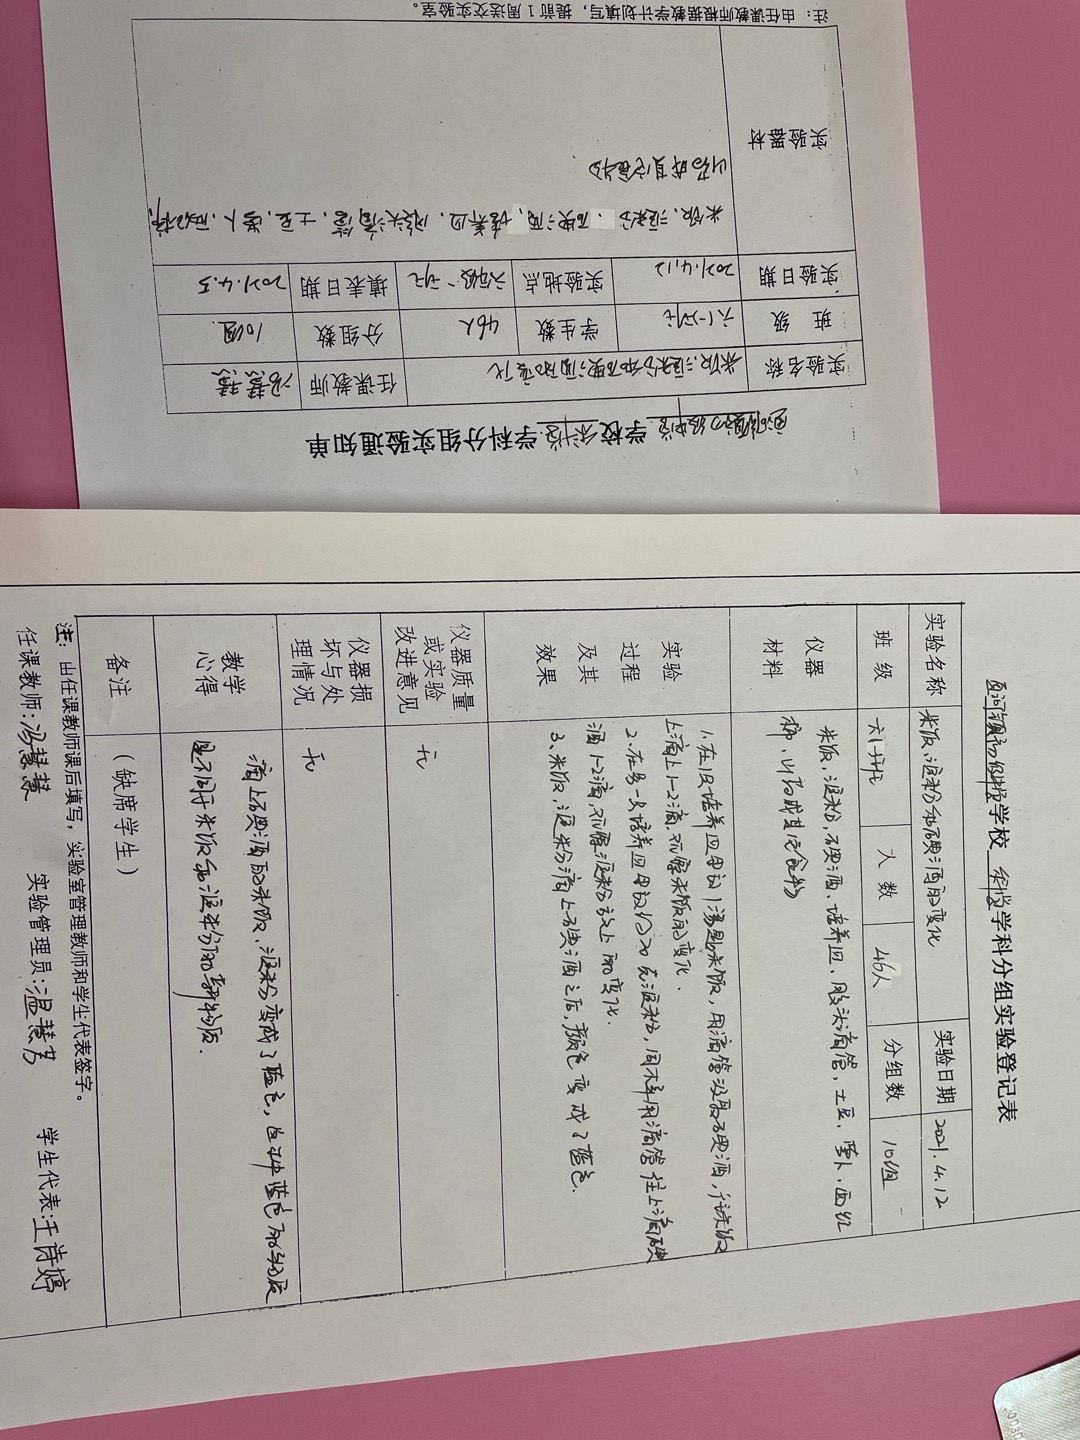 学校 科学 学科分组实验通知单
实验名称 米饭、淀粉和碘酒的变化 任课教师 冯慧慧
班 级 六(一)班 学生数 46人 分组数 10组
实验日期 2021.4.12 实验地点 六年级一班 填表日期 2021.4.5
实验器材 米饭、淀粉、碘酒、培养皿、胶头滴管、土豆、萝卜、西红柿、
山药或其它食物
注：由任课教师根据教学计划填写，提前1周送交实验室。
学校 科学 学科分组实验登记表
实验名称 米饭、淀粉和碘酒的变化 实验日期 2021.4.12
班 级 六(一)班 人 数 46人 分组数 10组
仪器
材料
米饭、淀粉、碘酒、培养皿、胶头滴管、土豆、萝卜、西红
柿、山药或其它食物
实验
过程
及其
效果
1.在1只培养皿里放1汤匙米饭，用滴管汲取碘酒，往米饭
上滴上1-2滴，观察米饭的变化.
2.在另一只培养皿里放约20克淀粉，同样用滴管往上滴碘
酒1-2滴，观察淀粉放上的变化.
3、米饭，淀粉分滴上碘酒之后，颜色变成了蓝色.
仪器质量
或实验
改进意见
无
仪器损
坏与处
理情况
无
教学
心得
滴上碘酒的米饭、淀粉变成了蓝色，这种蓝色的物质
是不同于米饭和淀粉的新物质.
备注
（缺席学生）
注：由任课教师课后填写，实验室管理教师和学生代表签字。
任课教师:冯慧慧 实验管理员:温慧芳 学生代表:王诗婷